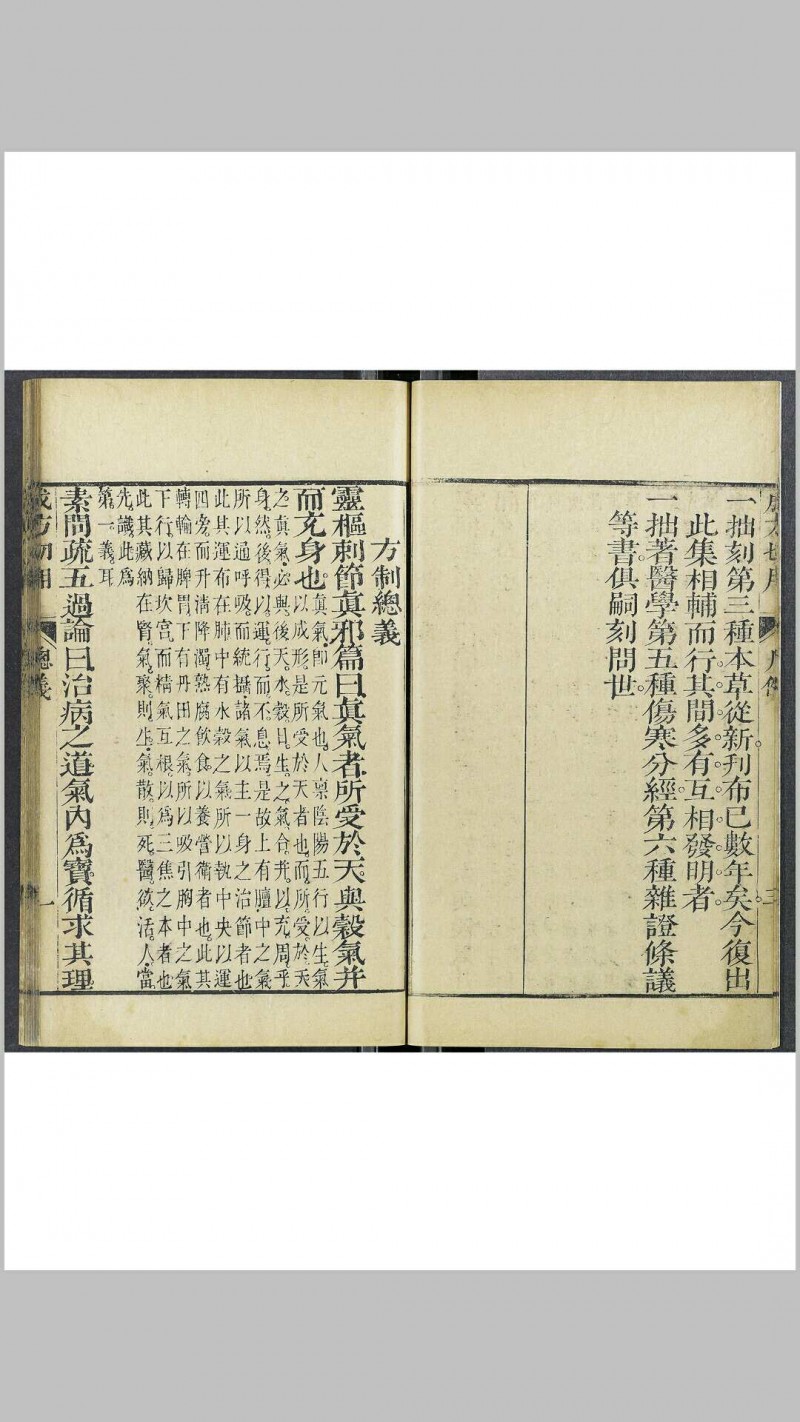 一拙刻第三種本草從新刊布已數年矣今復出
此集相輔而行其間多有互相發明者
一拙著醫學第五種傷寒分經第六種雜證條議
等書俱嗣刻問世
方制總義
靈樞刺節眞邪篇曰眞氣者所受於天與穀氣并
而充身也
眞氣卽元氣也人禀陰陽五行以生氣
以成形是所受於天者也而所受於天
之眞氣必與後天水穀日生之氣合幷以充周乎
身然後得以運行而不息焉是故上有膻中之氣
所以通呼吸而統攝諸氣以主一身之治節者也
此其運布在肺中有水穀之氣所以執中央以運
四旁而升淸降濁熟腐飮食以養營衛者也此其
轉輸在脾胃下有丹田之氣所以吸引胸中之氣
下行以歸坎宮而精氣互根以爲三焦之本者也
此其藏納在腎氣聚則生氣散則死醫欲活人當
先識此爲
第一義耳
素問疏五過論曰治病之道氣內爲寶循求其理
總義
一